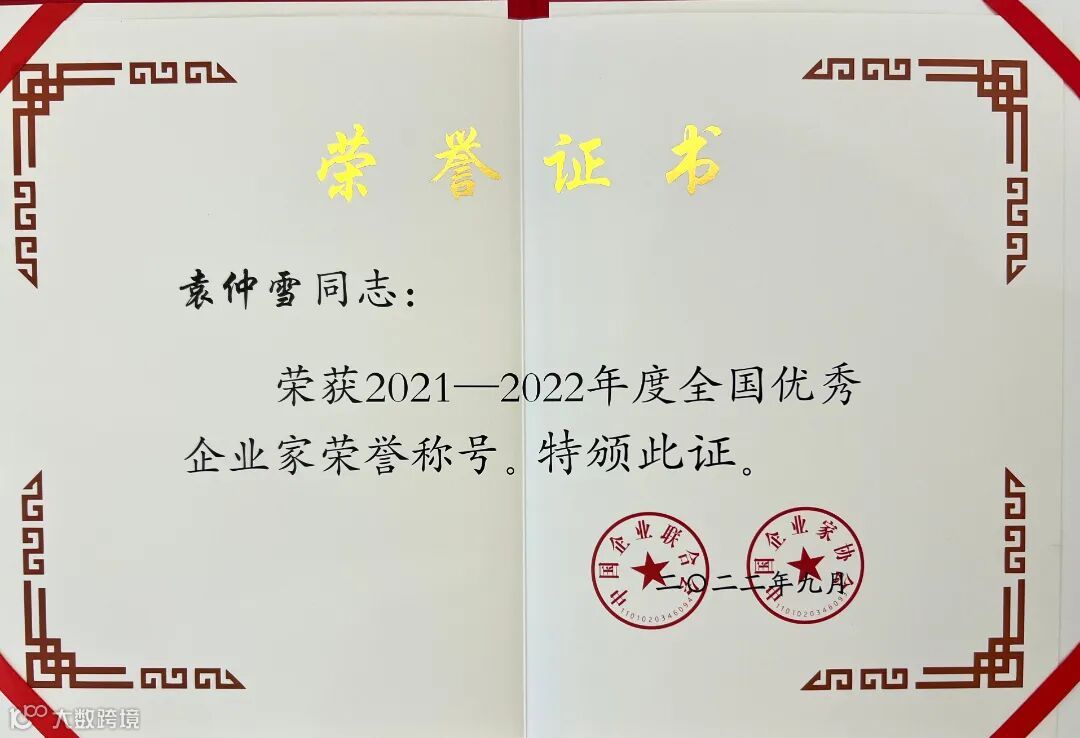 荣誉证书
袁仲雪同志：
荣获2021—2022年度全国优秀
企业家荣誉称号。特颁此证。
中国企业联合会
中国企业家协会
二〇二二年九月
大数跨境